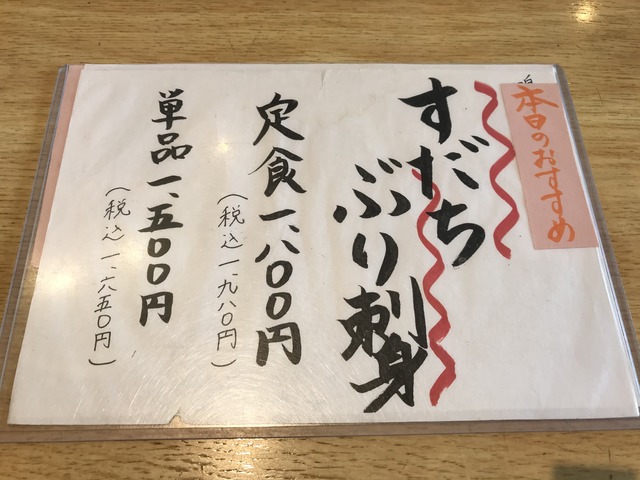 本日のおすすめ
すだち
ぶり刺身
定食 一、八〇〇円
（税込 一、九八〇円）
単品 一、五〇〇円
（税込 一、六五〇円）